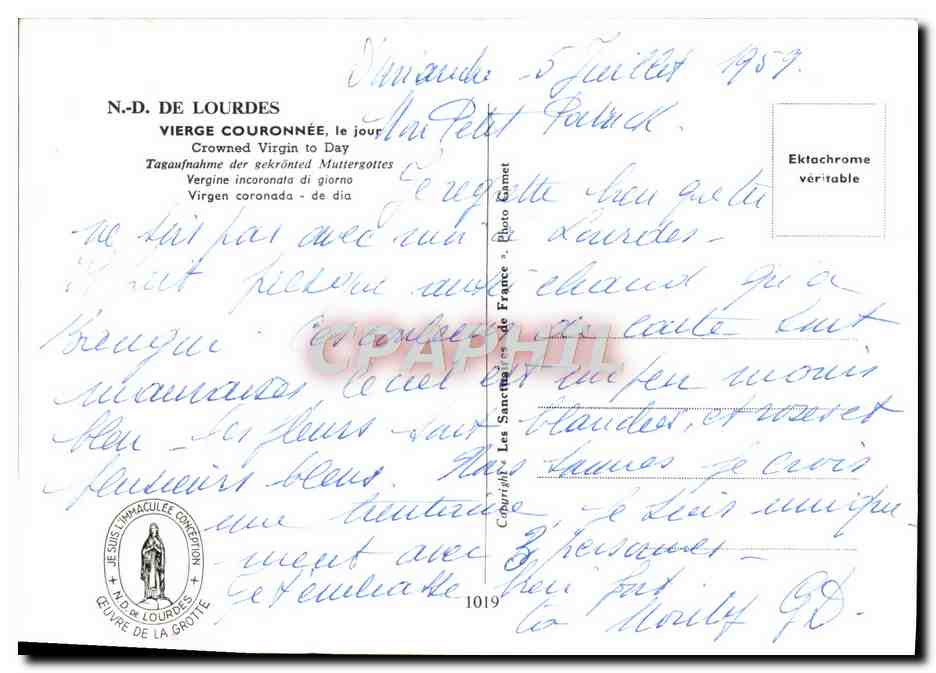 Dimanche 5 Juillet 1959.
N.-D. DE LOURDES
VIERGE COURONNÉE, le jour
Crowned Virgin to Day
Tagaufnahme der gekrönted Muttergottes
Vergine incoronata di giorno
Virgen coronada - de dia
Mon Petit Patrick.
Ektachrome
véritable
Je regrette bien que tu
ne sois pas avec moi à Lourdes -
Il fait presque aussi chaud qu'à
Les couleurs de la carte sont
mauvaises le ciel est un peu moins
bleu - les fleurs sont blanches, et roses et
plusieurs bleus. Nous sommes je crois
une trentaine, je suis unique-
ment avec 3 personnes -
Je t'embrasse bien fort.
ta GD.
Copyright « Les Sanctuaires de France », Photo Gamet
CPAPHIL
JE SUIS L'IMMACULEE CONCEPTION
N.D. DE LOURDES
ŒUVRE DE LA GROTTE
1019